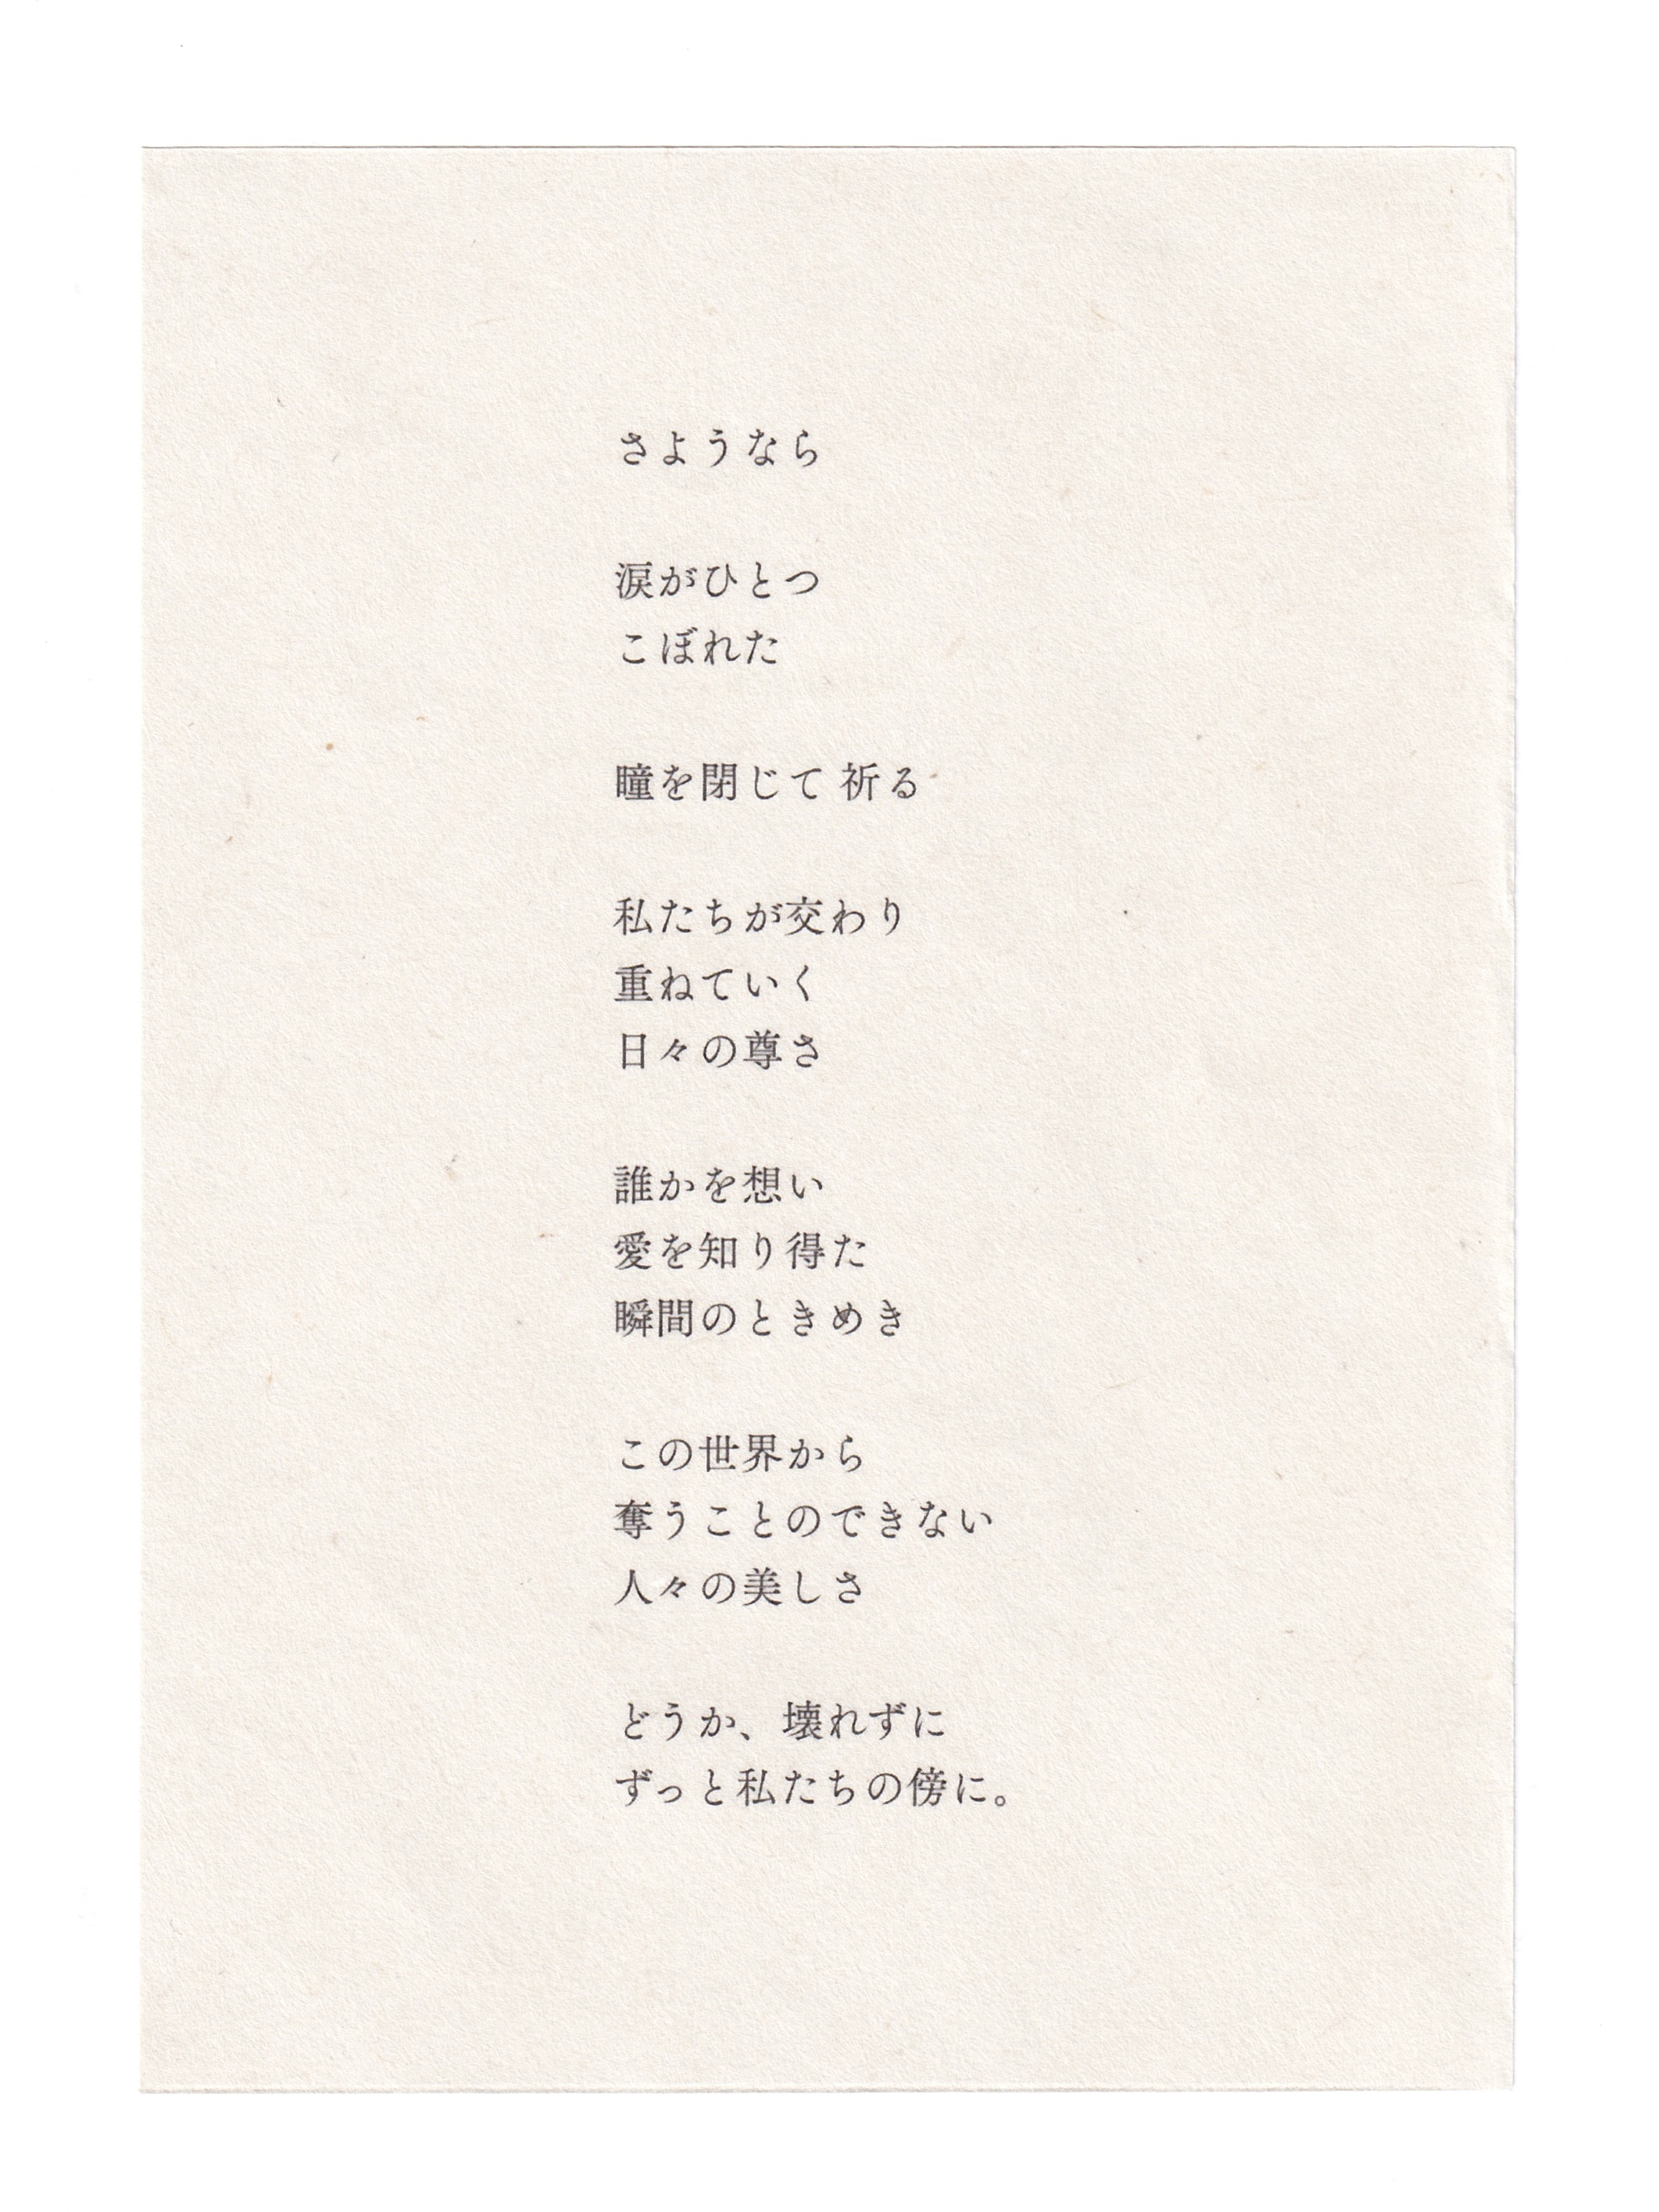 さようなら
涙がひとつ
こぼれた
瞳を閉じて 祈る
私たちが交わり
重ねていく
日々の尊さ
誰かを想い
愛を知り得た
瞬間のときめき
この世界から
奪うことのできない
人々の美しさ
どうか、壊れずに
ずっと私たちの傍に。